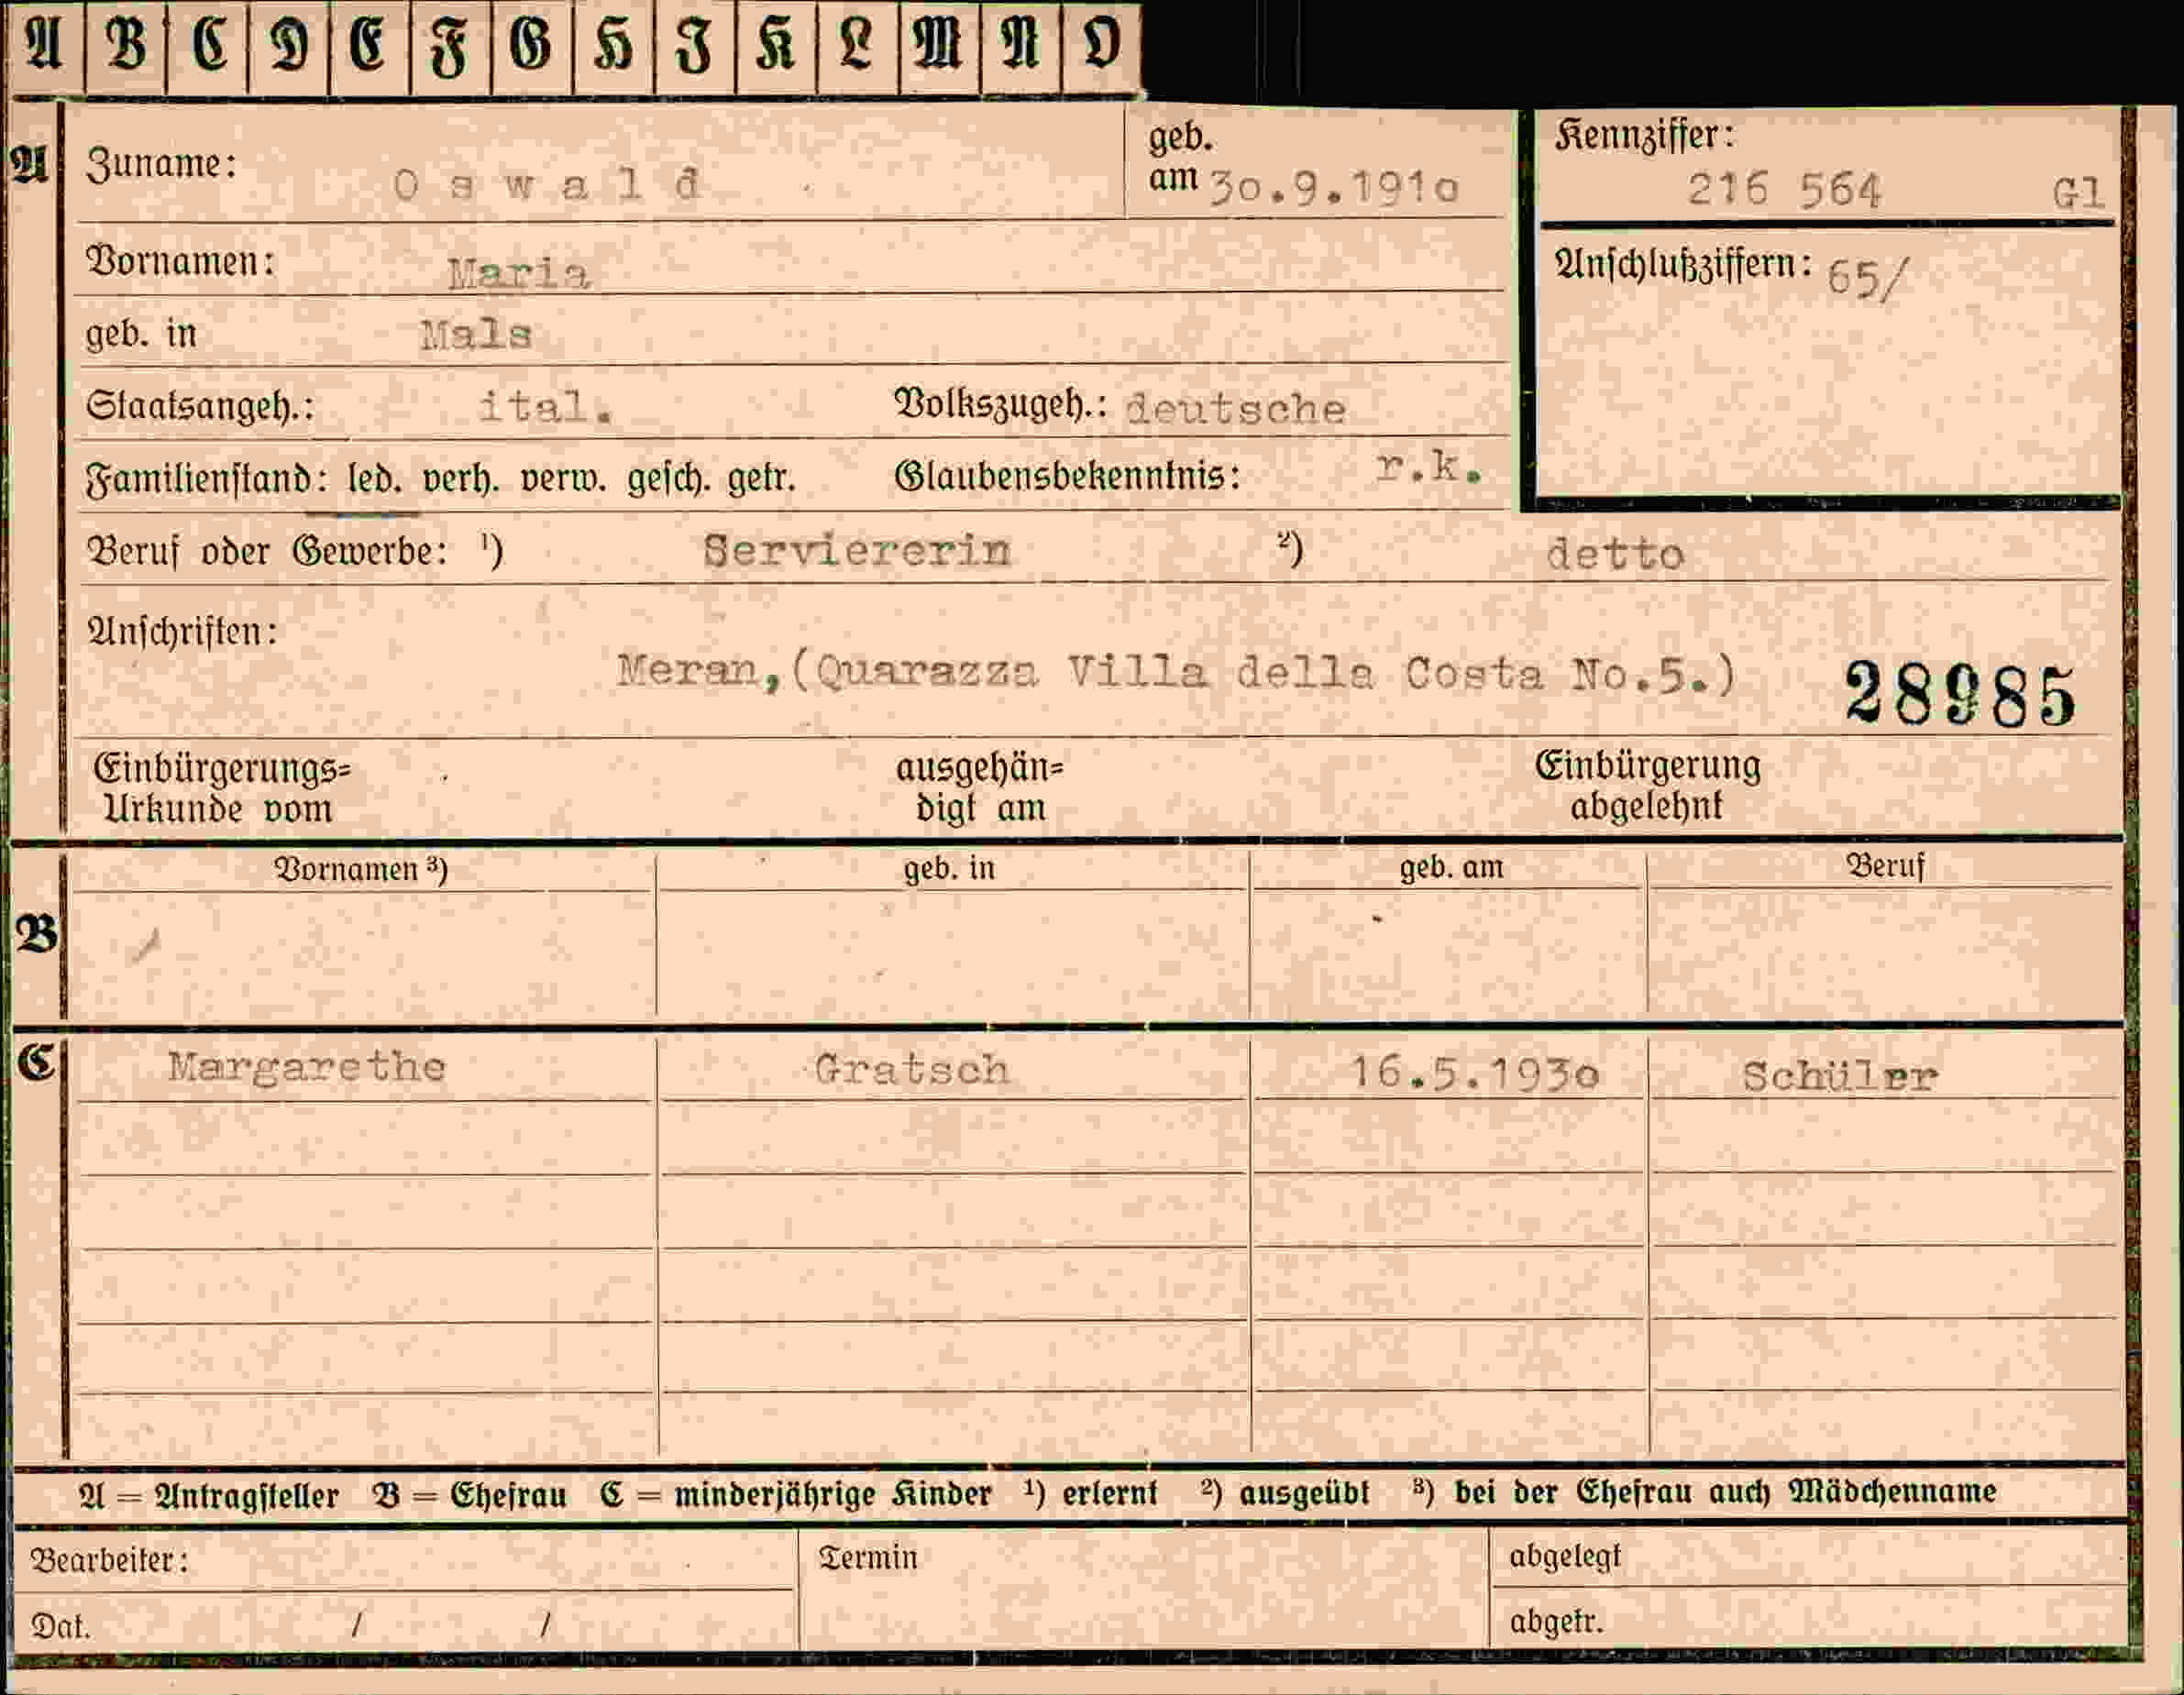 A B C D E F G H J K L M N O
A Zuname: Oswald geb. am 30.9.1910 Kennziffer: 216 564 Gl
Vornamen: Maria Anschlußziffern: 65/
geb. in Mals
Staatsangeh.: ital. Volkszugeh.: deutsche
Familienstand: led. verh. verw. gesch. getr. Glaubensbekenntnis: r.k.
Beruf oder Gewerbe: ¹) Serviererin ²) detto
Anschriften:
Meran,(Quarazza Villa della Costa No.5.) 28985
Einbürgerungs= ausgehän= Einbürgerung
Urkunde vom digt am abgelehnt
Vornamen ³) geb. in geb. am Beruf
B
C Margarethe Gratsch 16.5.1930 Schüler
A = Antragsteller B = Ehefrau C = minderjährige Kinder ¹) erlernt ²) ausgeübt ³) bei der Ehefrau auch Mädchenname
Bearbeiter: Termin abgelegt
Dat. / / abgetr.